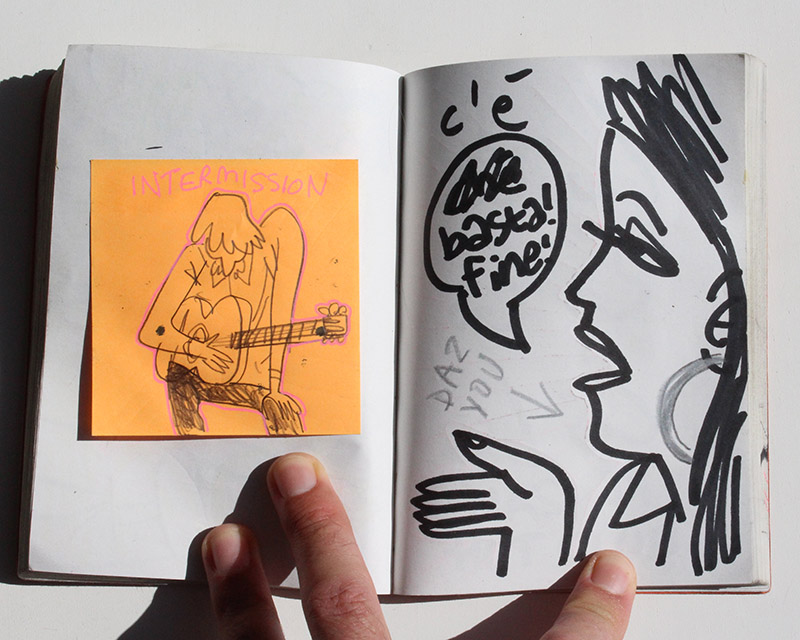 INTERMISSION
c'é
basta!
fine!
DAZ
YOU